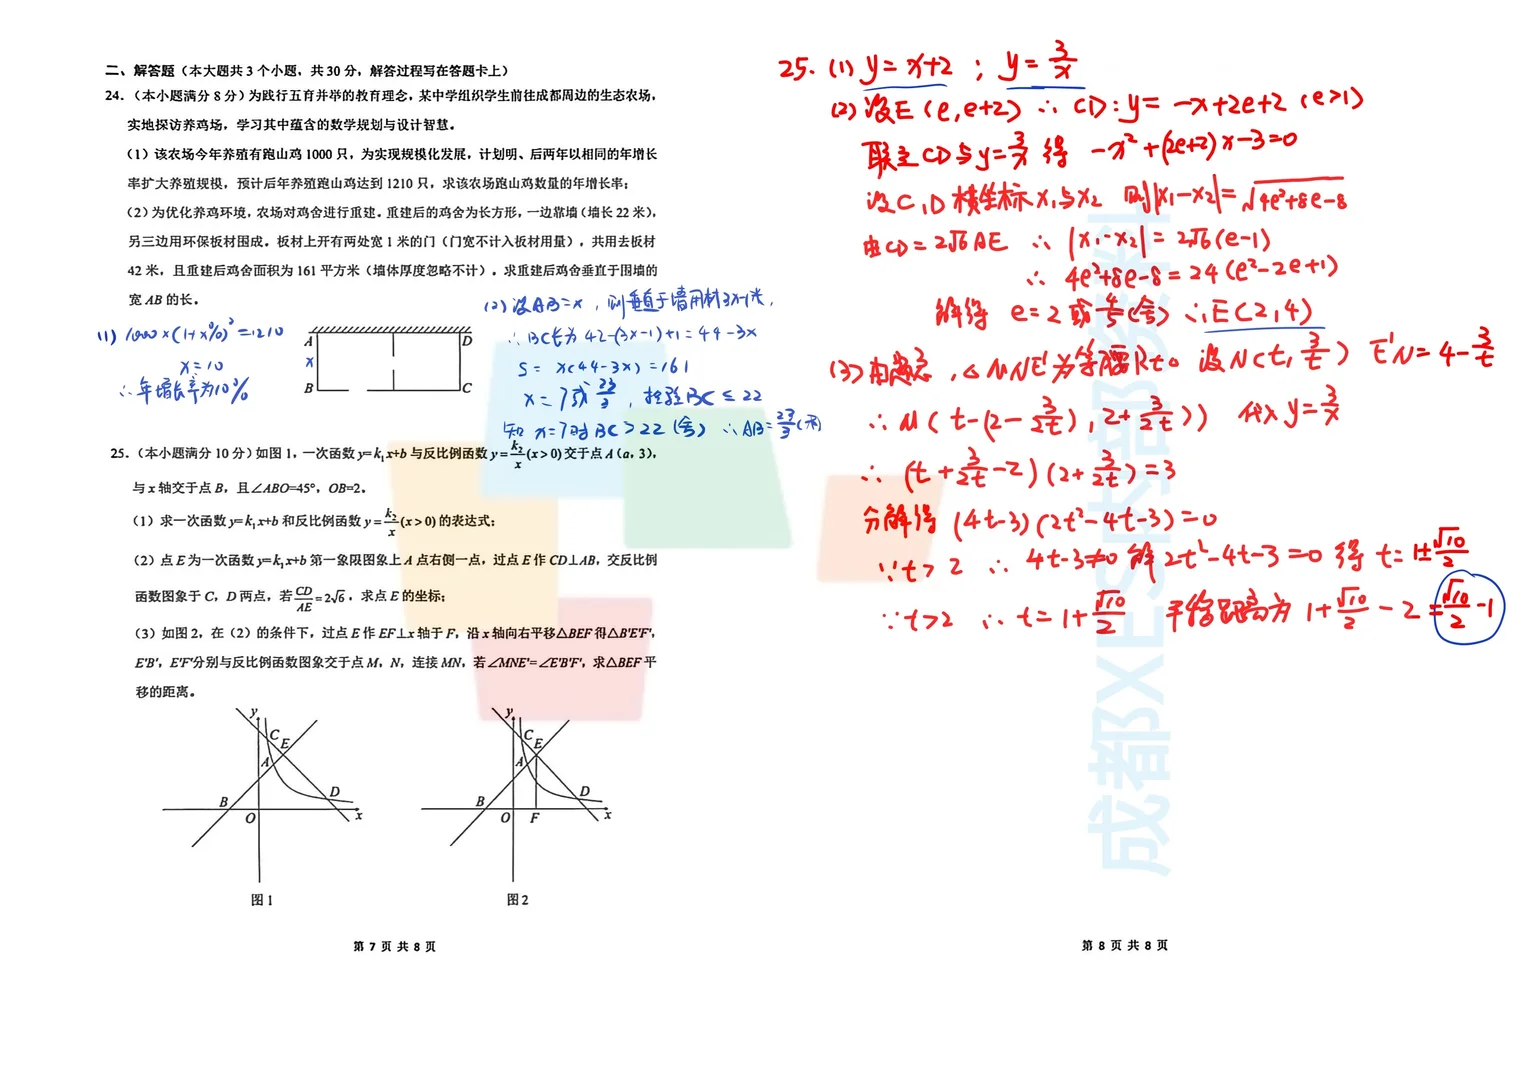 二、解答题（本大题共 3 个小题，共 30 分，解答过程写在答题卡上）
24．（本小题满分 8 分）为践行五育并举的教育理念，某中学组织学生前往成都周边的生态农场，
实地探访养鸡场，学习其中蕴含的数学规划与设计智慧。
（1）该农场今年养殖有跑山鸡 1000 只，为实现规模化发展，计划明、后两年以相同的年增长
率扩大养殖规模，预计后年养殖跑山鸡达到 1210 只，求该农场跑山鸡数量的年增长率；
（2）为优化养鸡环境，农场对鸡舍进行重建．重建后的鸡舍为长方形，一边靠墙（墙长 22 米），
另三边用环保板材围成．板材上开有两处宽 1 米的门（门宽不计入板材用量），共用去板材
42 米，且重建后鸡舍面积为 161 平方米（墙体厚度忽略不计）．求重建后鸡舍垂直于围墙的
宽 AB 的长。
(1) 1000×(1+x%)²=1210
x=10
∴年增长率为10%
A
D
x
B
C
(2) 设AB=x，则垂直于墙用材3x-1米，
∴BC长为 42-(3x-1)+1=44-3x
S= x(44-3x)=161
x=7或23/3，检验BC≤22
知 x=7时BC>22(舍) ∴AB=23/3(米)
25．（本小题满分 10 分）如图 1，一次函数 y=k₁x+b 与反比例函数 y=k₂/x(x>0)交于点 A（a，3），
与 x 轴交于点 B，且∠ABO=45°，OB=2．
（1）求一次函数 y=k₁x+b 和反比例函数 y=k₂/x(x>0)的表达式；
（2）点 E 为一次函数 y=k₁x+b 第一象限图象上 A 点右侧一点，过点 E 作 CD⊥AB，交反比例
函数图象于 C，D 两点，若CD/AE=2√6，求点 E 的坐标；
（3）如图 2，在（2）的条件下，过点 E 作 EF⊥x 轴于 F，沿 x 轴向右平移△BEF 得△B'E'F'，
E'B'，E'F'分别与反比例函数图象交于点 M，N，连接 MN，若∠MNE'=∠E'B'F'，求△BEF 平
移的距离。
y
C
E
A
B
O
D
x
图 1
y
C
E
A
B
O
F
D
x
图 2
第 7 页 共 8 页
25. (1) y=x+2 ； y=3/x
(2) 设E(e,e+2) ∴CD:y=-x+2e+2 (e>1)
联立CD与y=3/x 得 -x²+(2e+2)x-3=0
设C,D横坐标x₁与x₂ 则|x₁-x₂|=√4e²+8e-8
由CD=2√6AE ∴|x₁-x₂|=2√6(e-1)
∴ 4e²+8e-8=24(e²-2e+1)
解得 e=2或4/5(舍) ∴E(2,4)
(3) 由题意，△MNE'为等腰Rt△ 设N(t,3/t) E'N=4-3/t
∴M(t-(2-3/2t),2+3/2t)) 代入y=3/x
∴(t+3/2t-2)(2+3/2t)=3
分解得 (4t-3)(2t²-4t-3)=0
∵t>2 ∴4t-3≠0 解2t²-4t-3=0 得 t=1±√10/2
∵t>2 ∴t=1+√10/2 平移距离为 1+√10/2-2=√10/2-1
成都XES
第 8 页 共 8 页